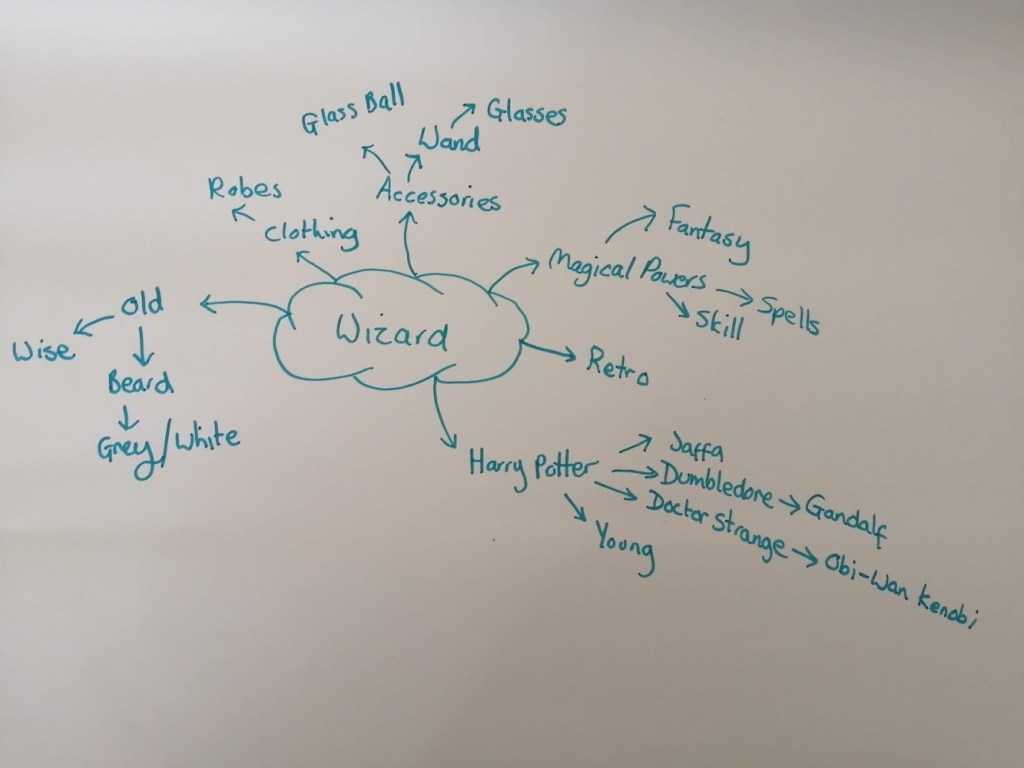 Glass Ball
Glasses
Wand
Robes
Accessories
Clothing
Fantasy
Magical Powers
Spells
Skill
Old
Wise
Beard
Grey/White
Wizard
Retro
Harry Potter
Jaffa
Dumbledore
Gandalf
Doctor Strange
Obi-Wan Kenobi
Young